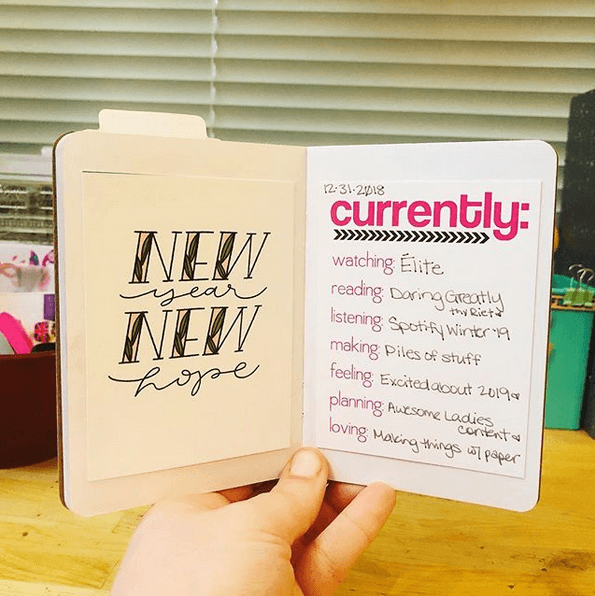 NEW
year
NEW
hope
12.31.2018
currently:
watching: Élite
reading: Daring Greatly
listening: Spotify Winter '19
making: Piles of stuff
feeling: Excited about 2019
planning: Awesome Ladies
content
loving: Making things w/ paper